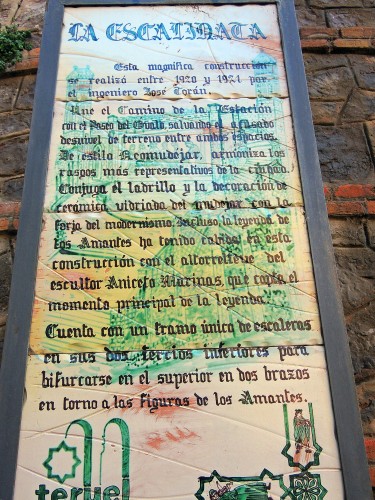 LA ESCALINATA
Esta magnifica construcción
se realizó entre 1920 y 1921 por
el ingeniero José Torán.
Une el Camino de la Estación
con el Paseo del Ovalo, salvando el acusado
desnivel de terreno entre ambos espacios.
De estilo Neomudéjar, armoniza los
rasgos más representativos de la ciudad.
Conjuga el ladrillo y la decoración de
cerámica vidriada del mudéjar con la
forja del modernismo. Incluso, la leyenda de
los Amantes ha tenido cabida en esta
construcción con el altorrelieve del
escultor Aniceto Marinas, que capta el
momento principal de la leyenda.
Cuenta con un tramo único de escaleras
en sus dos tercios inferiores para
bifurcarse en el superior en dos brazos
en torno a las figuras de los Amantes.
teruel